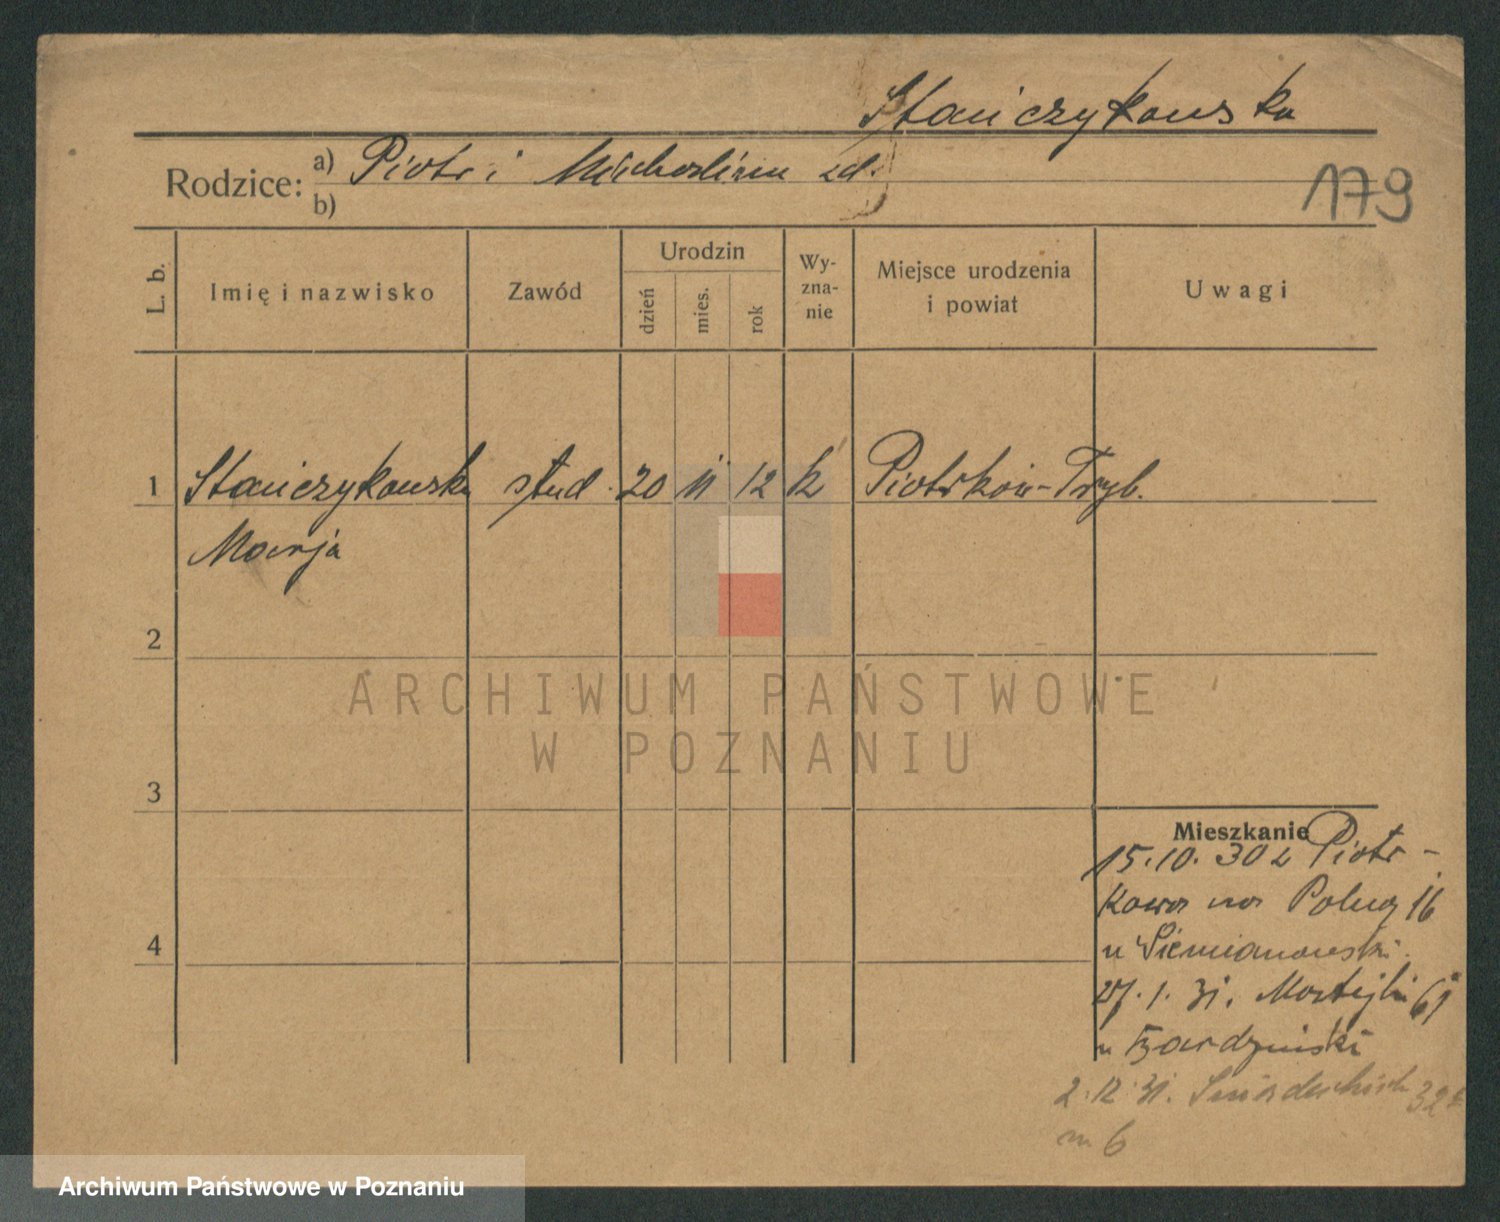 Stańczykowska
Rodzice: a) Piotr i Michalina zd.
b)
179
L. b.
Imię i nazwisko
Zawód
Urodzin
dzień
mies.
rok
Wy-
zna-
nie
Miejsce urodzenia
i powiat
Uwagi
1 Stańczykowska stud. 20 11 12 k Piotrków-Tryb.
Marja
2
3
4
Mieszkanie
15.10.30 z Piotr-
kowa na Polną 16
u Siemianowski.
27.1.31. Matejki 61
u Bardziński
2.12.31. Śniadeckich 32
m 6
ARCHIWUM PAŃSTWOWE
W POZNANIU
Archiwum Państwowe w Poznaniu